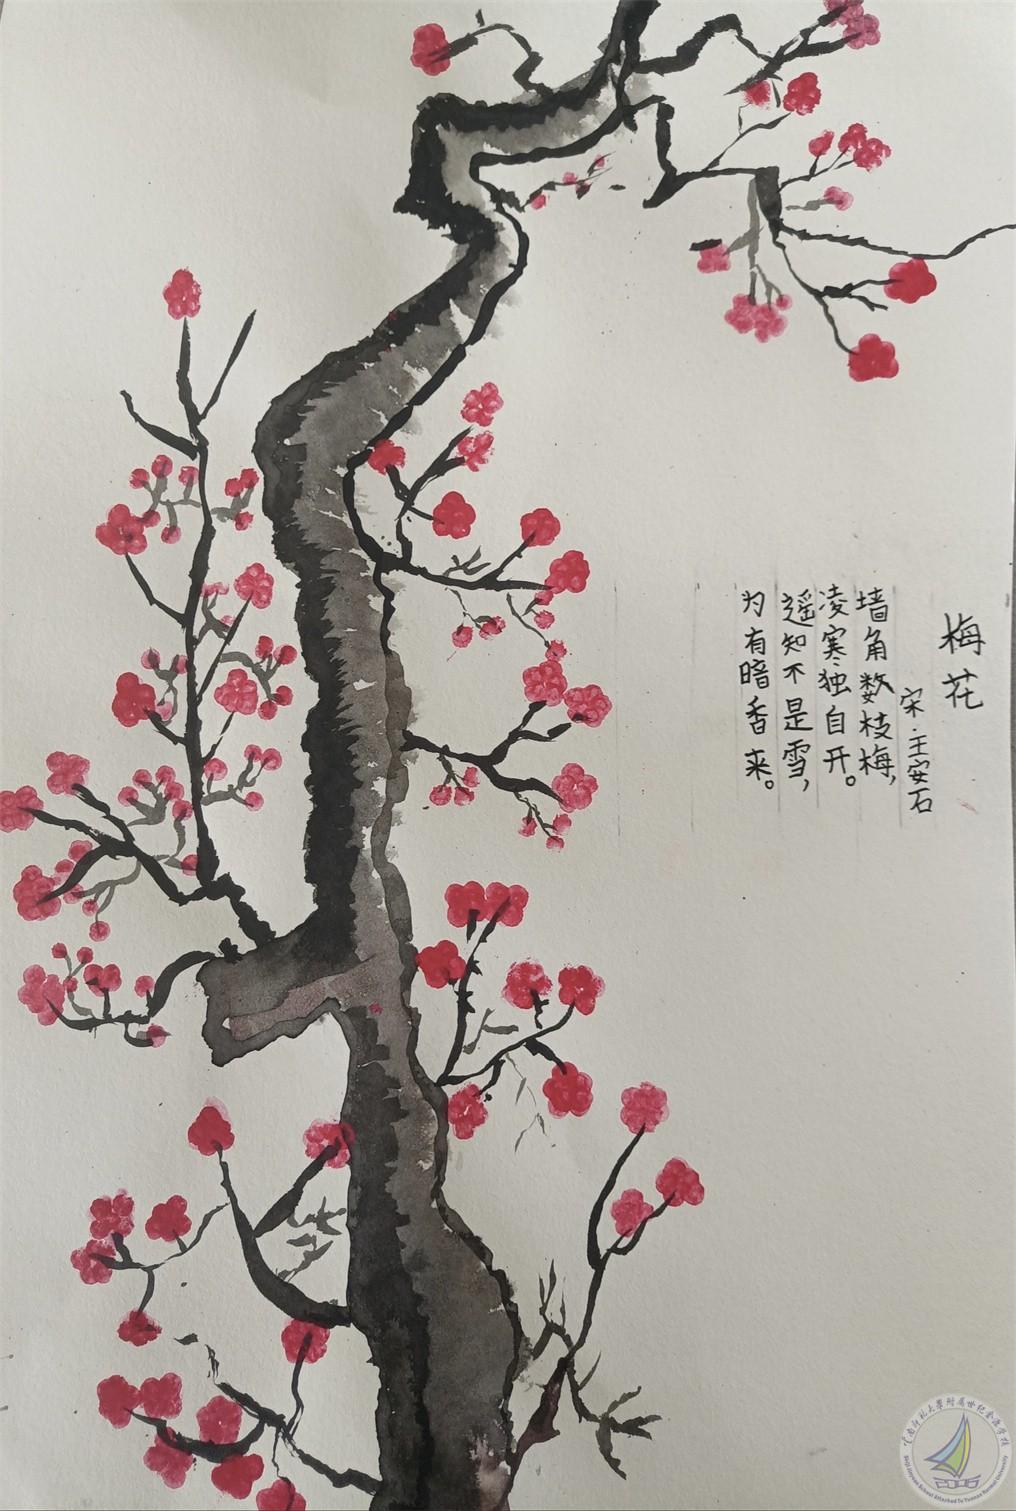 梅花
宋·王安石
墙角数枝梅，
凌寒独自开。
遥知不是雪，
为有暗香来。